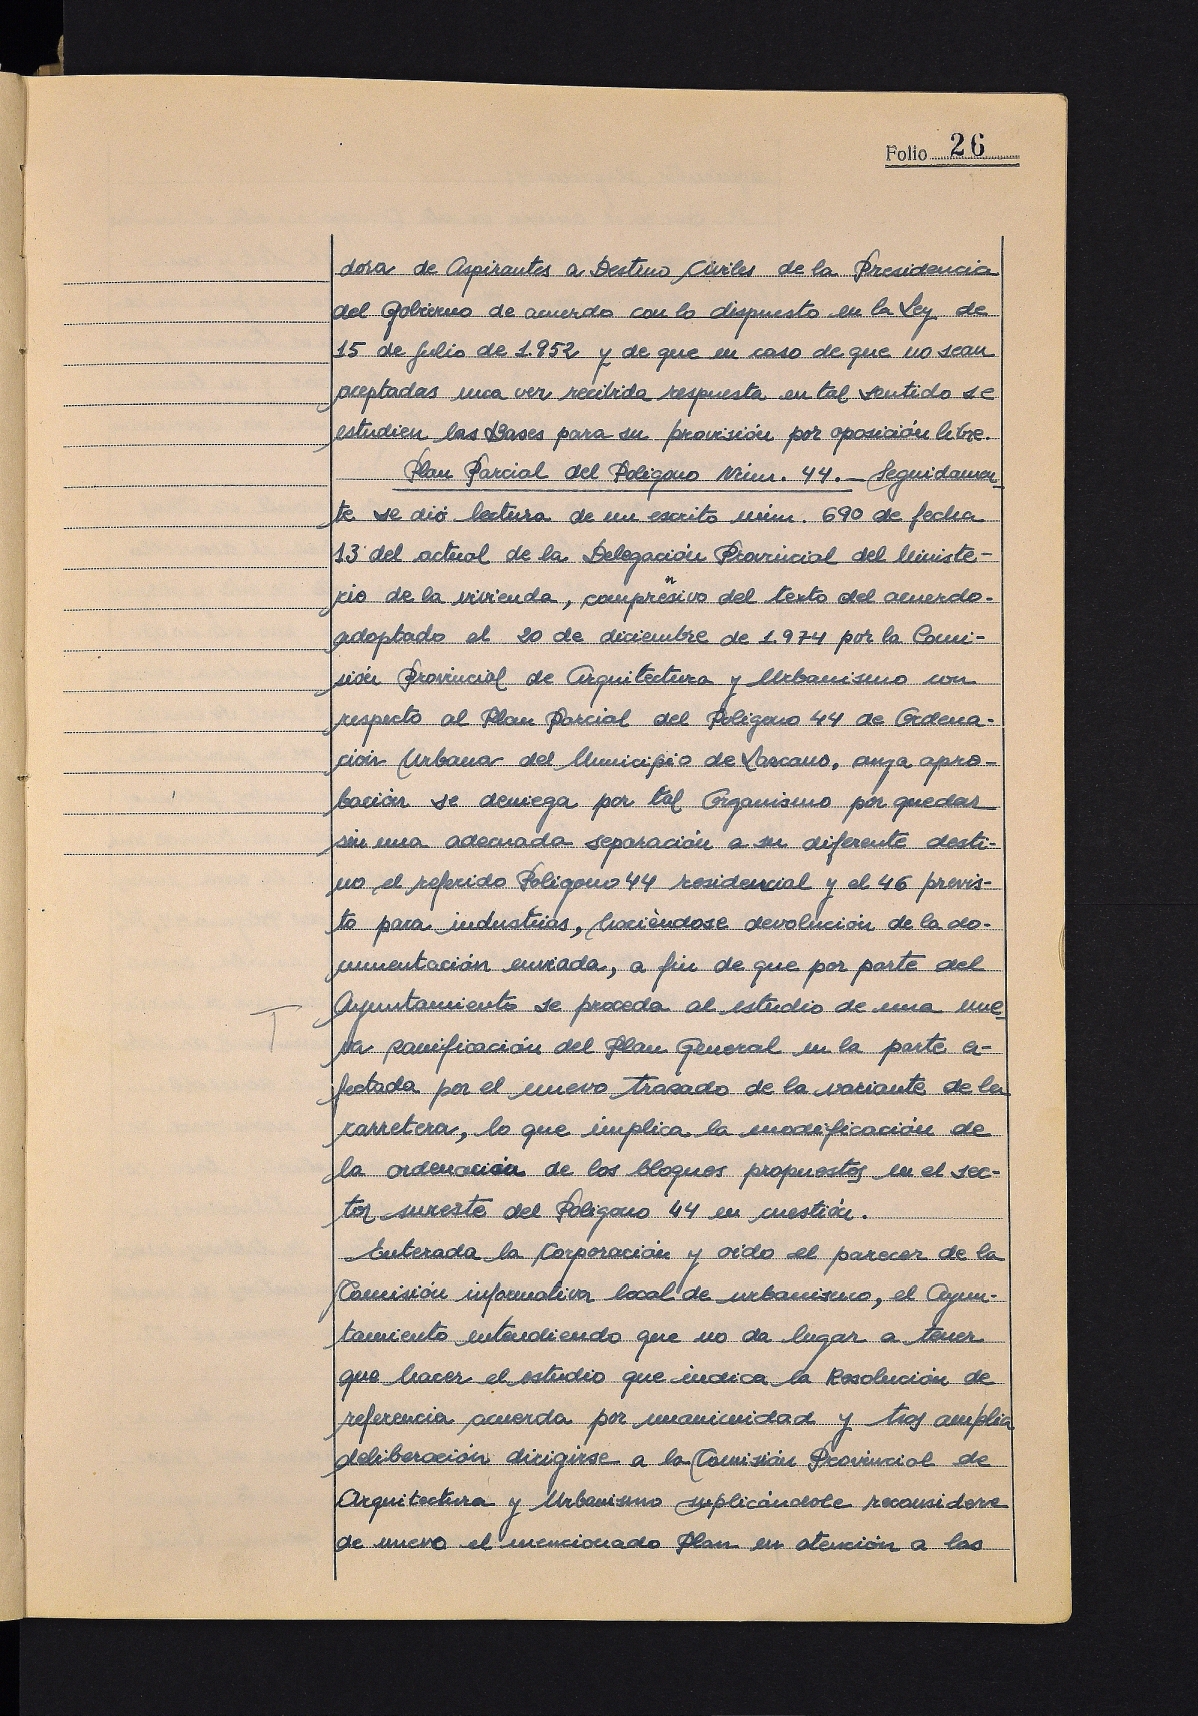 Folio 26
dora de Aspirantes a Destino Civiles de la Presidencia
del Gobierno de acuerdo con lo dispuesto en la Ley de
15 de Julio de 1.952 y de que en caso de que no sean
aceptadas una vez recibida respuesta en tal sentido se
estudien las Bases para su provisión por oposición libre.
Plan Parcial del Poligono Núm. 44.- Seguidamen-
te se dió lectura de un escrito núm. 690 de fecha
13 del actual de la Delegación Provincial del Ministe-
rio de la vivienda, comprensivo del texto del acuerdo
adoptado el 20 de diciembre de 1.974 por la Comi-
sión Provincial de Arquitectura y Urbanismo con
respecto al Plan Parcial del Poligono 44 de Ordena-
ción Urbana del Municipio de Lazcano, cuya apro-
bación se deniega por tal Organismo por quedar
sin una adecuada separación a su diferente desti-
no el referido Poligono 44 residencial y el 46 previs-
to para industrias, haciéndose devolución de la do-
cumentación enviada, a fin de que por parte del
Ayuntamiento se proceda al estudio de una nue-
va zonificación del Plan General en la parte a-
fectada por el nuevo trazado de la variante de la
carretera, lo que implica la modificación de
la ordenación de los bloques propuestos en el sec-
tor sureste del Poligono 44 en cuestión.
Enterada la Corporación y oido el parecer de la
Comisión informativa local de urbanismo, el Ayun-
tamiento entendiendo que no da lugar a tener
que hacer el estudio que indica la Resolución de
referencia acuerda por unanimidad y tras amplia
deliberación dirigirse a la Comisión Provincial de
Arquitectura y Urbanismo suplicándole reconsidere
de nuevo el mencionado Plan en atención a las